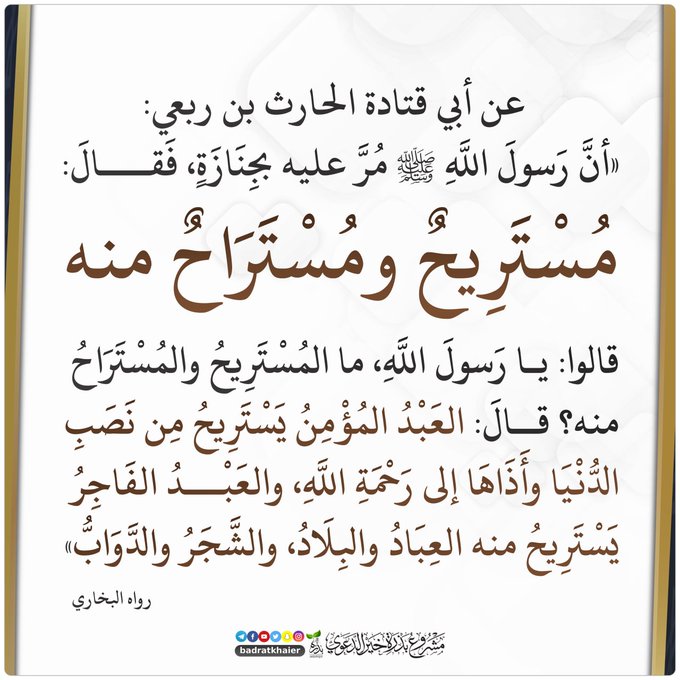 عن أبي قتادة الحارث بن ربعي:
«أنَّ رَسولَ اللَّهِ ﷺ مُرَّ عليه بجِنَازَةٍ، فَقـــــالَ:
مُسْتَرِيحٌ ومُسْتَرَاحٌ منه
قالوا: يــا رَسولَ اللَّهِ، ما المُسْتَرِيحُ والمُسْتَرَاحُ
منه؟ قــــالَ: العَبْدُ المُؤْمِنُ يَسْتَرِيحُ مِن نَصَبِ
الدُّنْيَا وأَذَاهَا إلى رَحْمَةِ اللَّهِ، والعَبْــــدُ الفَاجِرُ
يَسْتَرِيحُ منه العِبَادُ والبِلَادُ، والشَّجَرُ والدَّوَابُّ»
رواه البخاري
مشروع بذرة خير الدعوي
بذرة
badratkhaier